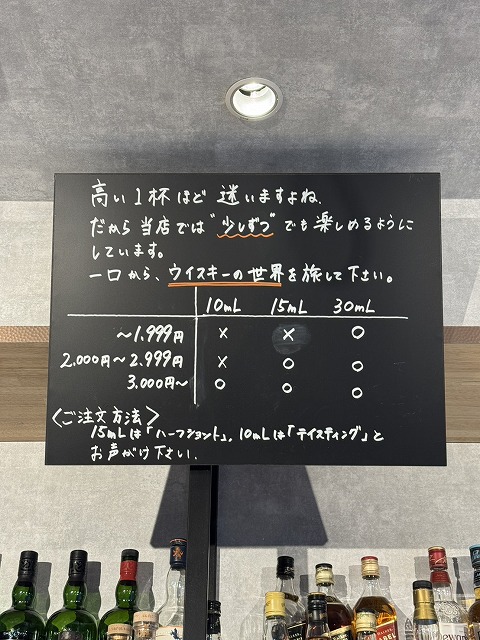 高い1杯ほど 迷いますよね、
だから当店では"少しずつ"でも楽しめるように
しています。
一口から、ウイスキーの世界を旅して下さい。
10mL 15mL 30mL
～1,999円 × × ○
2,000円～2,999円 × ○ ○
3,000円～ ○ ○ ○
〈ご注文方法〉
15mLは「ハーフショント」、10mLは「テイスティング」と
お声がけ下さい、